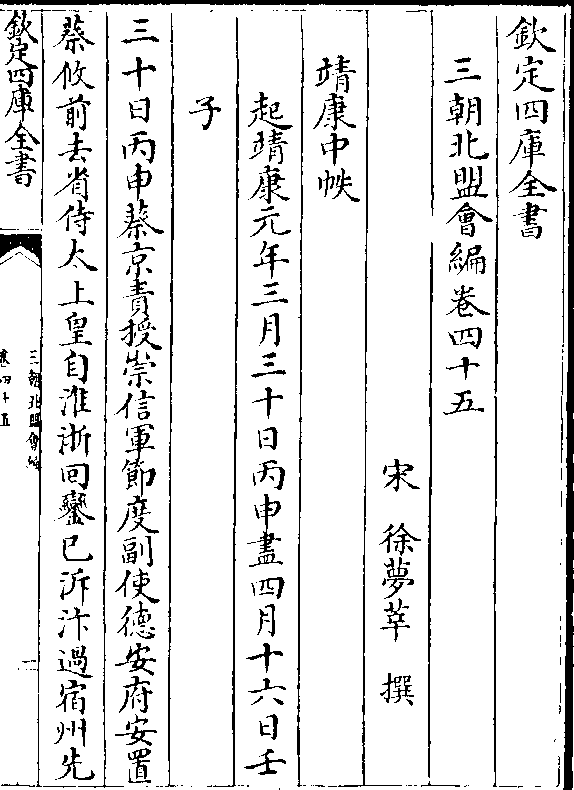 欽定四庫全書
三朝北盟會編卷四十五
宋 徐夢莘 撰
靖康中帙
起靖康元年三月三十日丙申盡四月十六日壬
子
三十日丙申蔡京責授崇信軍節度副使德安府安置
蔡攸前去省侍太上皇自淮浙回鑾已泝汴過宿州先
欽定四庫全書
三朝北盟會編
卷四十五
一